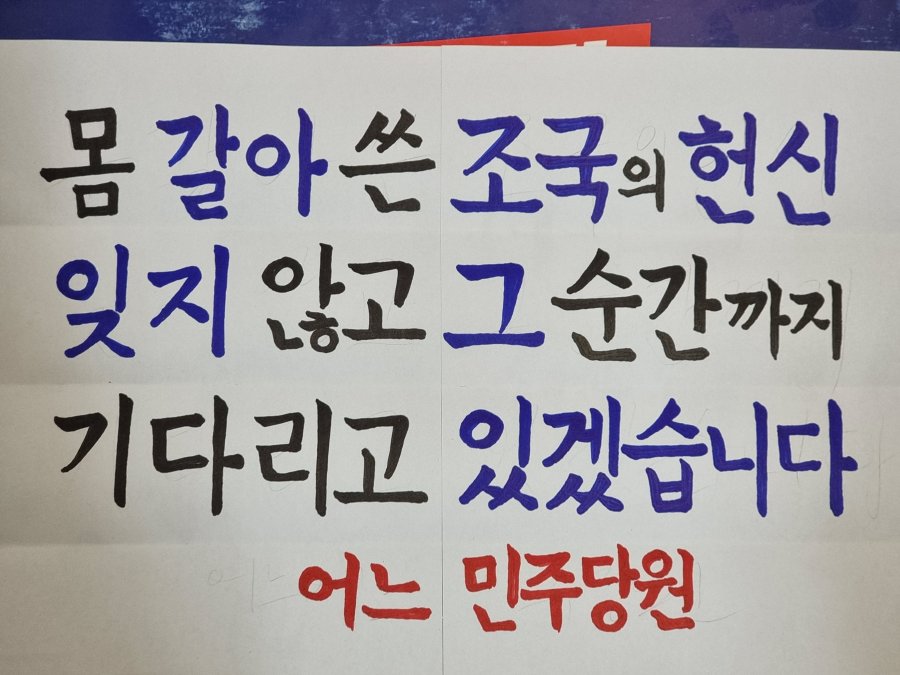 몸 갈아 쓴 조국의 헌신
잊지 않고 그 순간까지
기다리고 있겠습니다
어느 민주당원